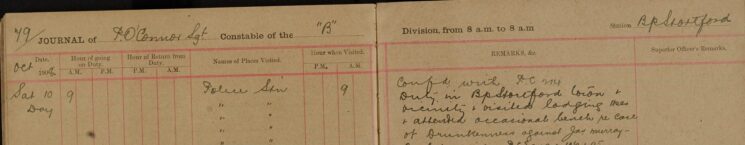 79/ JOURNAL of P. O'Connor Sgt Constable of the "B" Division, from 8 a.m. to 8 a.m Station Bp Stortford
Date. Hour of going on Duty. Hour of Return from Duty. Names of Places Visited. Hour when Visited. REMARKS, &c. Superior Officer's Remarks.
Oct 190 A.M. P.M. A.M. P.M. P.M. A.M.
Sat 10 9 Police Stn 9
Day " "
" "
" "
Confd with P.C.
Duty in Bp Stortford town &
vicinity & visited lodging
& attended occasional bench re case
of Drunkenness against Jas Murray-